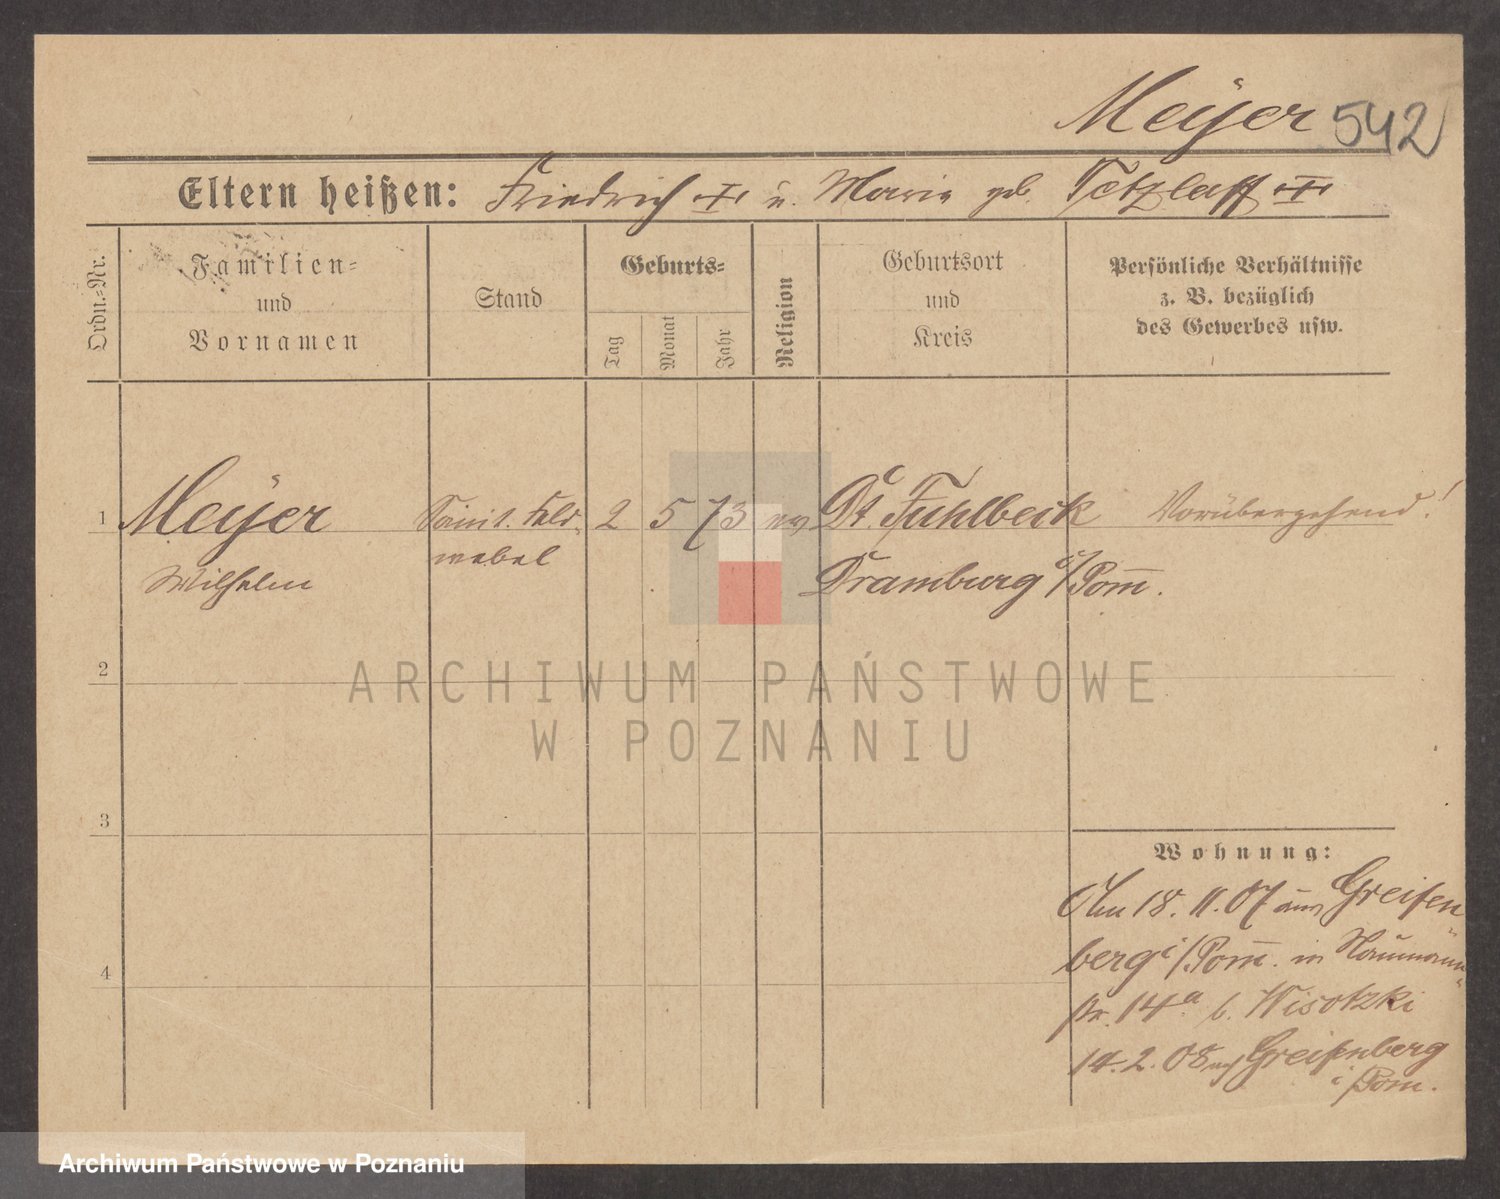 Meÿer 542
Eltern heißen: Friedrich † u. Marie geb. Tetzlaff †
Ordn.-Nr.
Familien-
und
Vornamen
Stand
Geburts-
Tag
Monat
Jahr
Religion
Geburtsort
und
Kreis
Persönliche Verhältnisse
z. B. bezüglich
des Gewerbes usw.
1 Meÿer Sanit. Feld- 2 5 73 ev Dt. Fuhlbeck Vorübergehend!
Wilhelm webel Dramburg i/Pom̅.
2
ARCHIWUM PAŃSTWOWE
W POZNANIU
3
Wohnung:
Am 18. 11. 07 aus Greifen
4
berg i/Pom̅. in Naumann-
str. 14a b. Wisotzki
14. 2. 08 nach Greifenberg
i Pom.
Archiwum Państwowe w Poznaniu